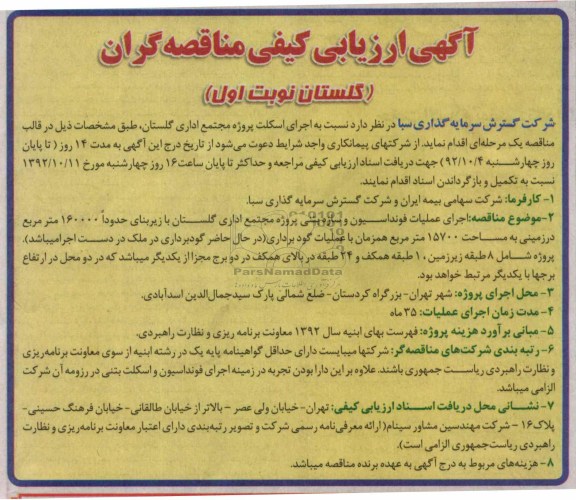 آگهی ارزیابی کیفی مناقصه گران
(گلستان نوبت اول)
شرکت گسترش سرمایه گذاری سبا در نظر دارد نسبت به اجرای اسکلت پروژه مجتمع اداری گلستان، طبق مشخصات ذیل در قالب
مناقصه یک مرحله‌ای اقدام نماید. از شرکتهای پیمانکاری واجد شرایط دعوت می‌شود از تاریخ درج این آگهی به مدت ۱۴ روز (تا پایان
روز چهارشنبه ۹۲/۱۰/۴) جهت دریافت اسناد ارزیابی کیفی مراجعه و حداکثر تا پایان ساعت ۱۶ روز چهارشنبه مورخ ۱۳۹۲/۱۰/۱۱
نسبت به تکمیل و بازگرداندن اسناد اقدام نمایند.
۱- کارفرما: شرکت سهامی بیمه ایران و شرکت گسترش سرمایه گذاری سبا.
۲-موضوع مناقصه: اجرای عملیات فونداسیون و سازه‌بتنی پروژه مجتمع اداری گلستان با زیربنای حدوداً ۱۶۰۰۰۰ متر مربع
درزمینی به مساحت ۱۵۷۰۰ متر مربع همزمان با عملیات گود برداری (در حال حاضر گودبرداری در ملک در دست اجرا میباشد).
پروژه شامل ۸ طبقه زیرزمین، ۱ طبقه همکف و ۲۴ طبقه در بالای همکف در دو برج مجزا از یکدیگر میباشد که در دو محل در ارتفاع
برجها با یکدیگر مرتبط خواهد بود.
۳- محل اجرای پروژه: شهر تهران- بزرگراه کردستان- ضلع شمالی پارک سیدجمال‌الدین اسدآبادی.
۴- مدت زمان اجرای عملیات: ۳۵ ماه
۵- مبانی برآورد هزینه پروژه: فهرست بهای ابنیه سال ۱۳۹۲ معاونت برنامه ریزی و نظارت راهبردی.
۶- رتبه بندی شرکت‌های مناقصه‌گر: شرکتها میبایست دارای حداقل گواهینامه پایه یک در رشته ابنیه از سوی معاونت برنامه‌ریزی
و نظارت راهبردی ریاست جمهوری باشند. علاوه بر این دارا بودن تجربه در زمینه اجرای فونداسیون و اسکلت بتنی در رزومه آن شرکت
الزامی میباشد.
۷- نشانی محل دریافت اسناد ارزیابی کیفی: تهران- خیابان ولی عصر - بالاتر از خیابان طالقانی- خیابان فرهنگ حسینی-
پلاک ۱۶ - شرکت مهندسین مشاور سینام (ارائه معرفی‌نامه رسمی شرکت و تصویر رتبه‌بندی دارای اعتبار معاونت برنامه‌ریزی و نظارت
راهبردی ریاست‌جمهوری الزامی است).
۸- هزینه‌های مربوط به درج آگهی به عهده برنده مناقصه میباشد.
ParsNamadData